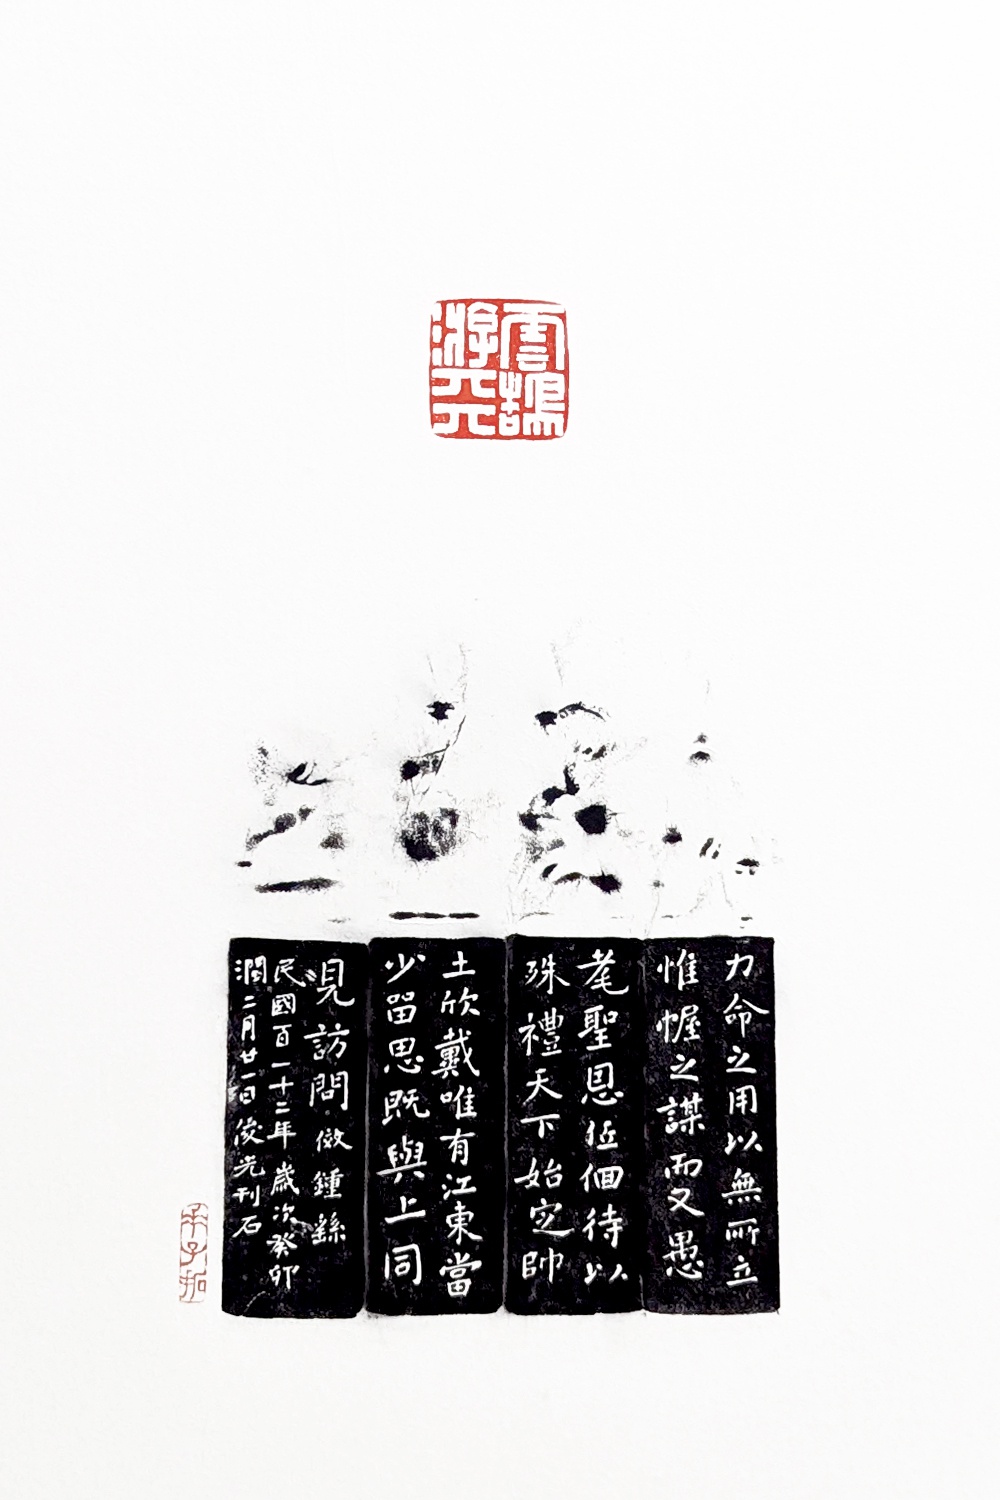 雲鵠
游天
力命之用以無所立
惟幄之謀而又愚
耄聖恩低佪待以
殊禮天下始定帥
土欣戴唯有江東當
少留思既與上同
見訪問倣鍾繇
民國百一十二年歲次癸卯
潤二月廿一日俊光刊石